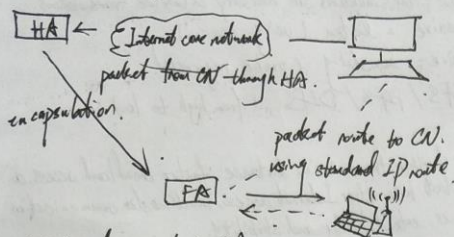 HA
Internet core network
packet from CN through HA.
encapsulation.
packet route to CN.
using standard IP route
FA